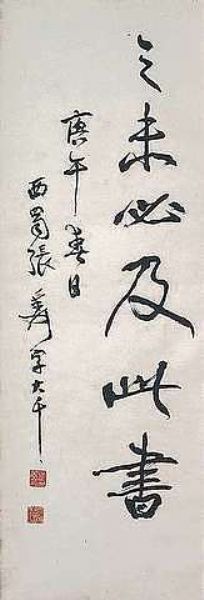 之未必及此書
庚午春日
西蜀張爰字大千